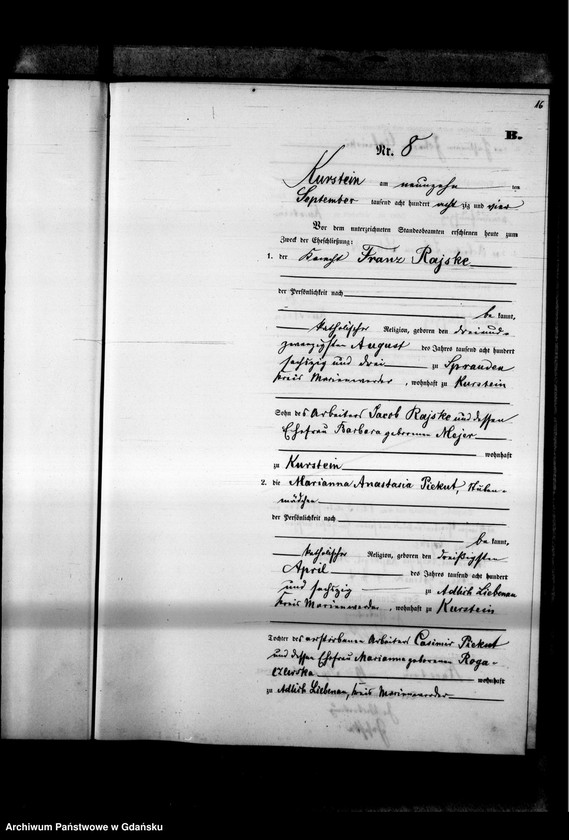 16
B.
Nr. 8
Kurstein am neunzehn ten
September tausend acht hundert acht zig und vier
Vor dem unterzeichneten Standesbeamten erschienen heute zum
Zweck der Eheschließung:
1. der Knecht Franz Rajske
der Persönlichkeit nach
be kannt,
katholischer Religion, geboren den dreiund-
zwanzigsten August des Jahres tausend acht hundert
sechszig und drei zu Sprauden
Kreis Marienwerder, wohnhaft zu Kurstein
Sohn des Arbeiters Jacob Rajske und dessen
Ehefrau Barbara geborenen Mejer
wohnhaft
zu Kurstein
2. die Marianna Anastasia Piekut, Stuben-
mädchen
der Persönlichkeit nach
be kannt,
katholischer Religion, geboren den dreißigsten
April des Jahres tausend acht hundert
und sechszig zu Adlich Liebenau
Kreis Marienwerder, wohnhaft zu Kurstein
Tochter des verstorbenen Arbeiters Casimir Piekut
und dessen Ehefrau Marianna geborenen Roga-
czewska wohnhaft
zu Adlich Liebenau, Kreis Marienwerder
Archiwum Państwowe w Gdańsku